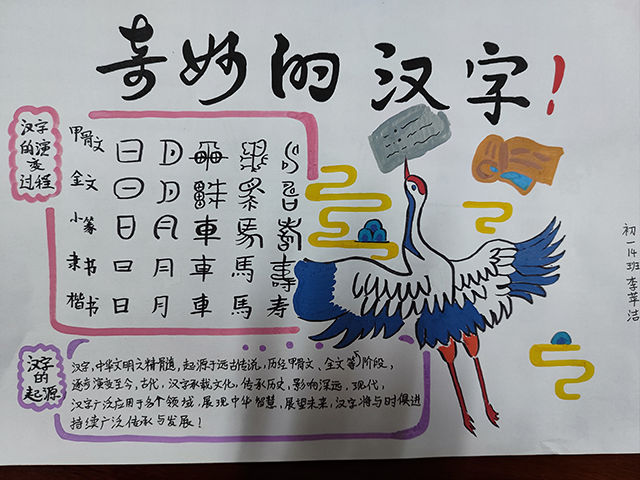 奇妙的汉字！
汉字
的演
变
过程
甲骨文
金文
小篆
隶书
日 月 車 馬
楷书
日 月 车 马 寿
汉字
的
起源
汉字,中华文明之精骨遗,起源于远古传说,历经甲骨文、金文等阶段,
逐步演变至今,古代,汉字承载文化,传承历史,影响深远,现代,
汉字广泛应用于各个领域,展现中华智慧,展望未来,汉字将与时俱进
持续广泛传承与发展！
初一14班李苹洁